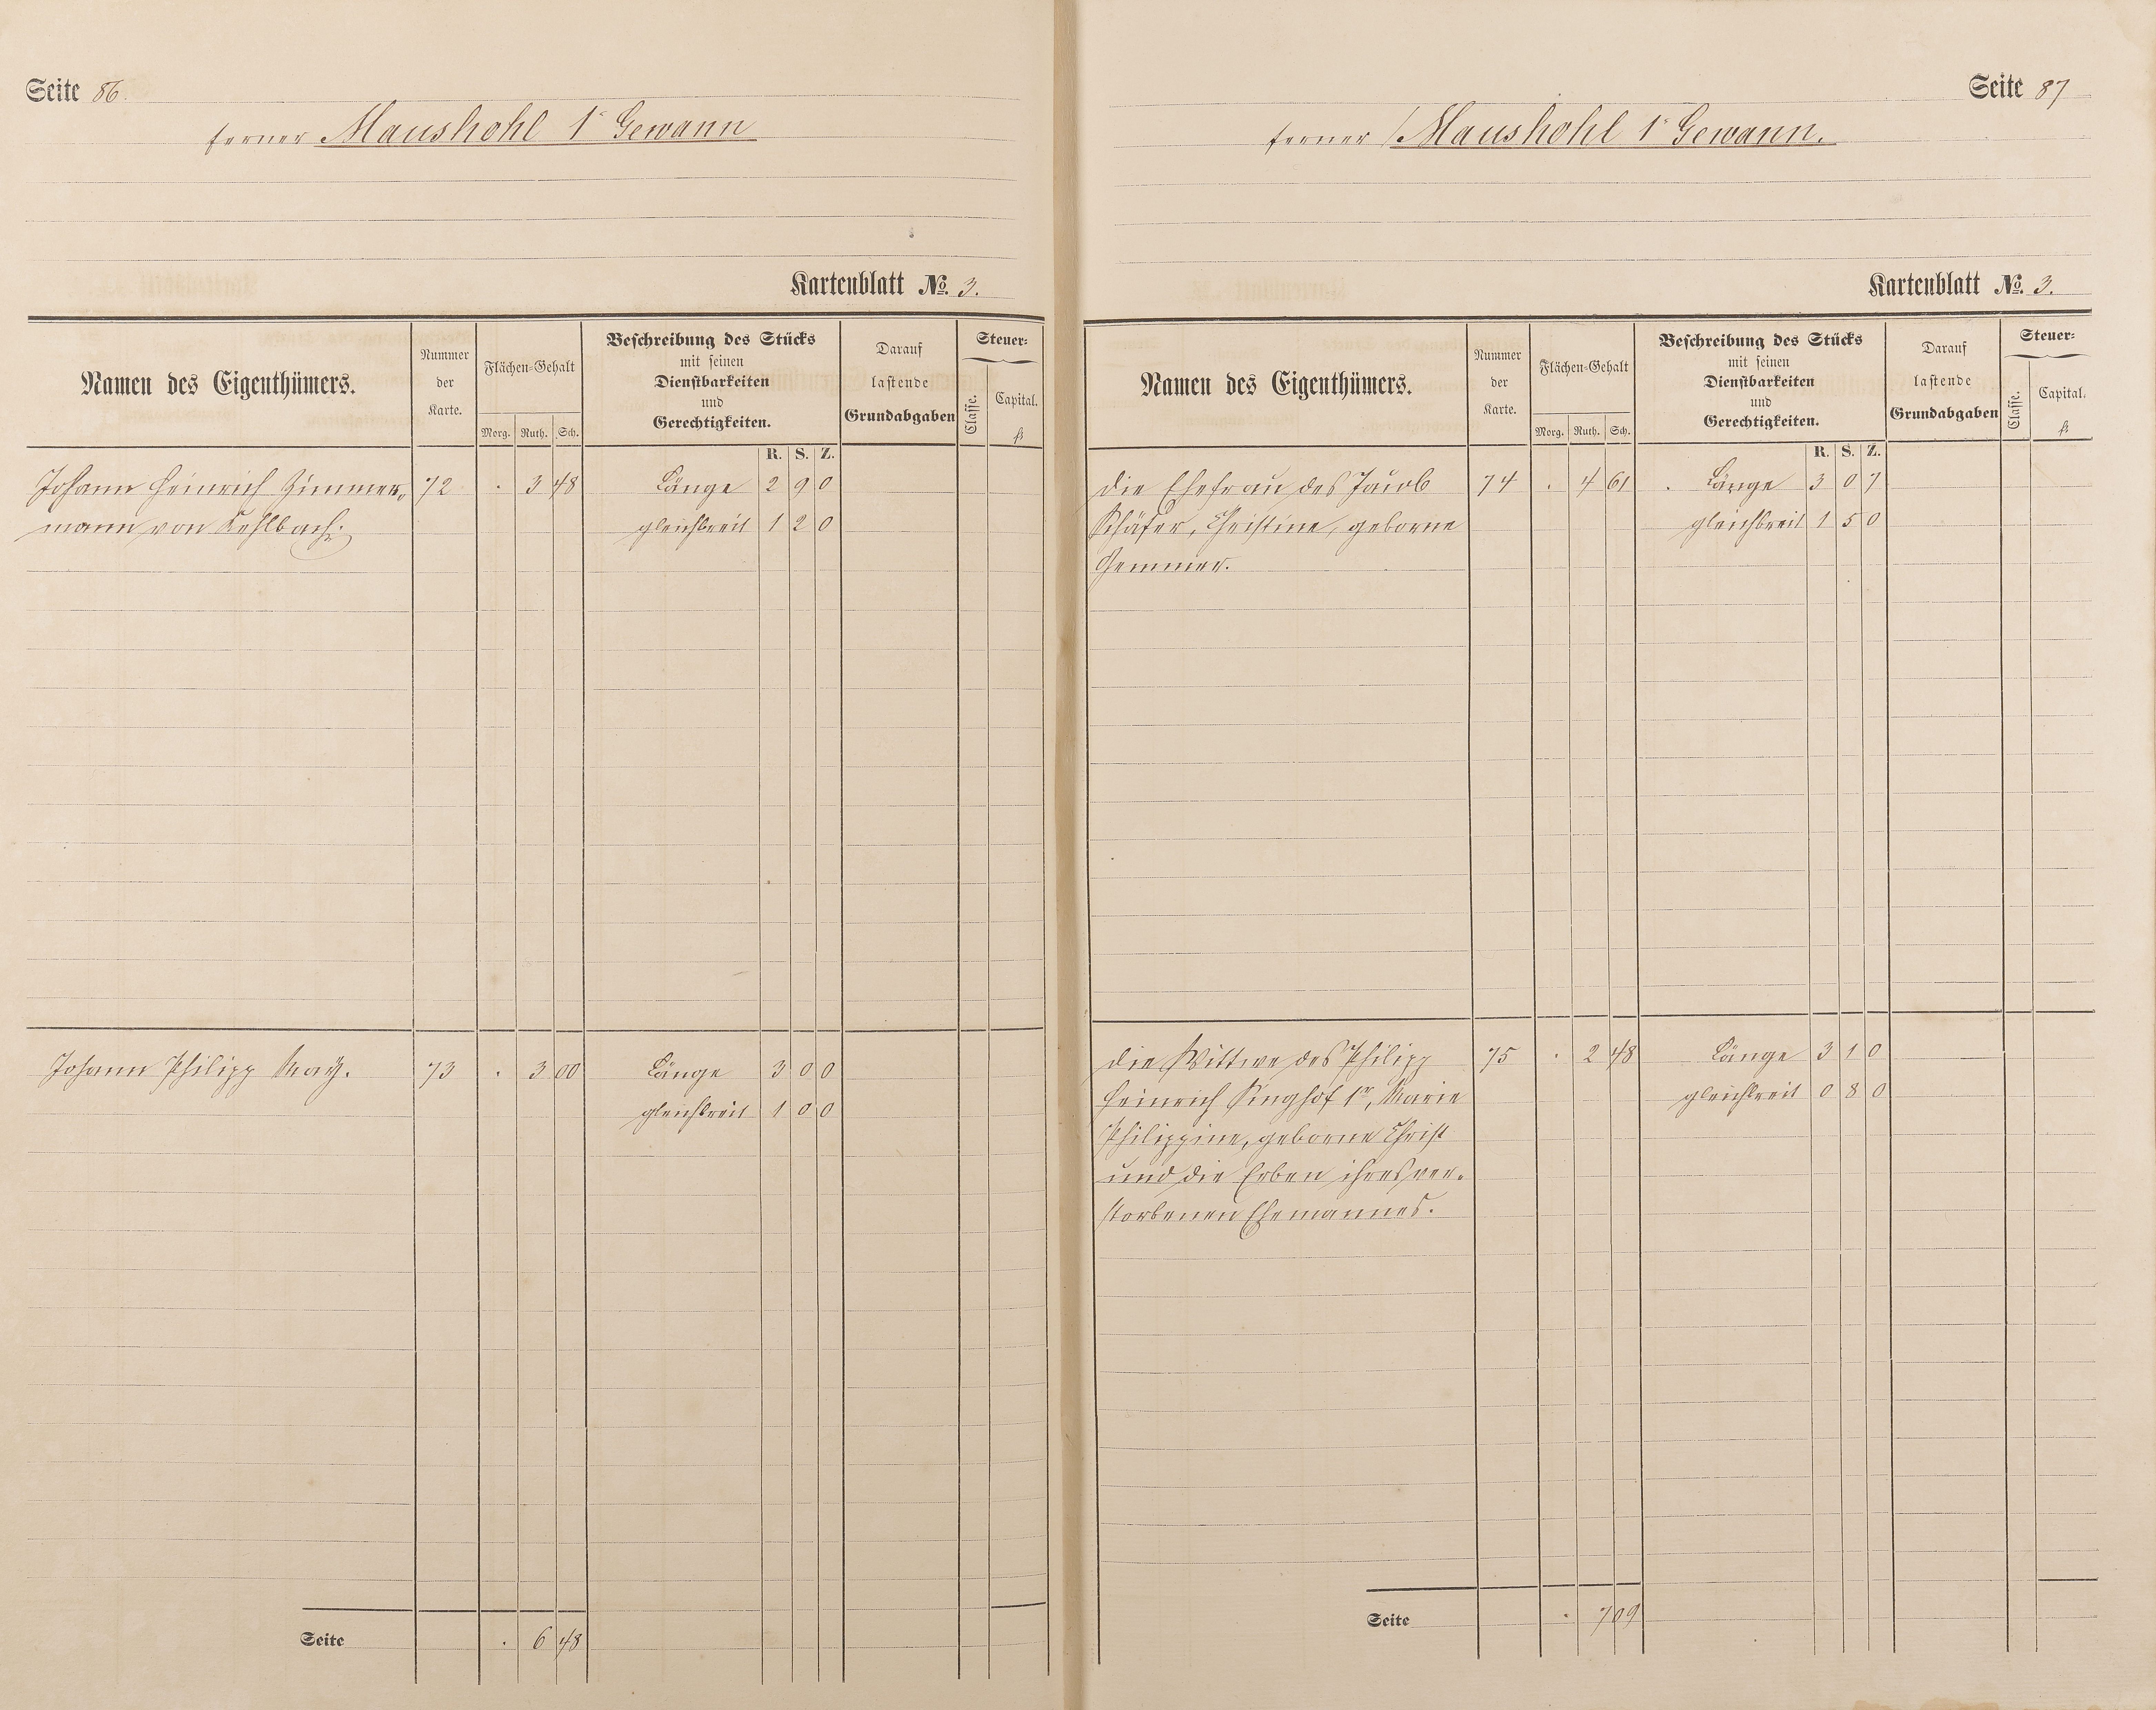 Seite 86.
ferner Maushohl 1r Gewann
Kartenblatt No. 3.
Namen des Eigenthümers.
Nummer der Karte.
Flächen-Gehalt
Morg. Ruth. Sch.
Beschreibung des Stücks
mit seinen
Dienstbarkeiten
und
Gerechtigkeiten.
Darauf
lastende
Grundabgaben
Steuer-
Classe.
Capital.
fl.
R. S. Z.
Johann Heinrich Zimmer- 72 . 3 48 Länge 2 9 0
mann von Kehlbach. gleichbreit 1 2 0
Johann Philipp May. 73 . 3 00 Länge 3 0 0
gleichbreit 1 0 0
Seite . 6 48
Seite 87
ferner Maushohl 1r Gewann.
Kartenblatt No. 3.
Namen des Eigenthümers.
Nummer der Karte.
Flächen-Gehalt
Morg. Ruth. Sch.
Beschreibung des Stücks
mit seinen
Dienstbarkeiten
und
Gerechtigkeiten.
Darauf
lastende
Grundabgaben
Steuer-
Classe.
Capital.
fl.
R. S. Z.
Die Ehefrau des Jacob 74 . 4 61 Länge 3 0 7
Schäfer, Christine, geborne gleichbreit 1 5 0
Gemmer.
Die Wittwe des Philipp 75 . 2 48 Länge 3 1 0
Heinrich Singhof 1r, Marie gleichbreit 0 8 0
Philippine, geborne Christ
und die Erben ihres ver-
storbenen Ehemannes.
Seite . 7 09